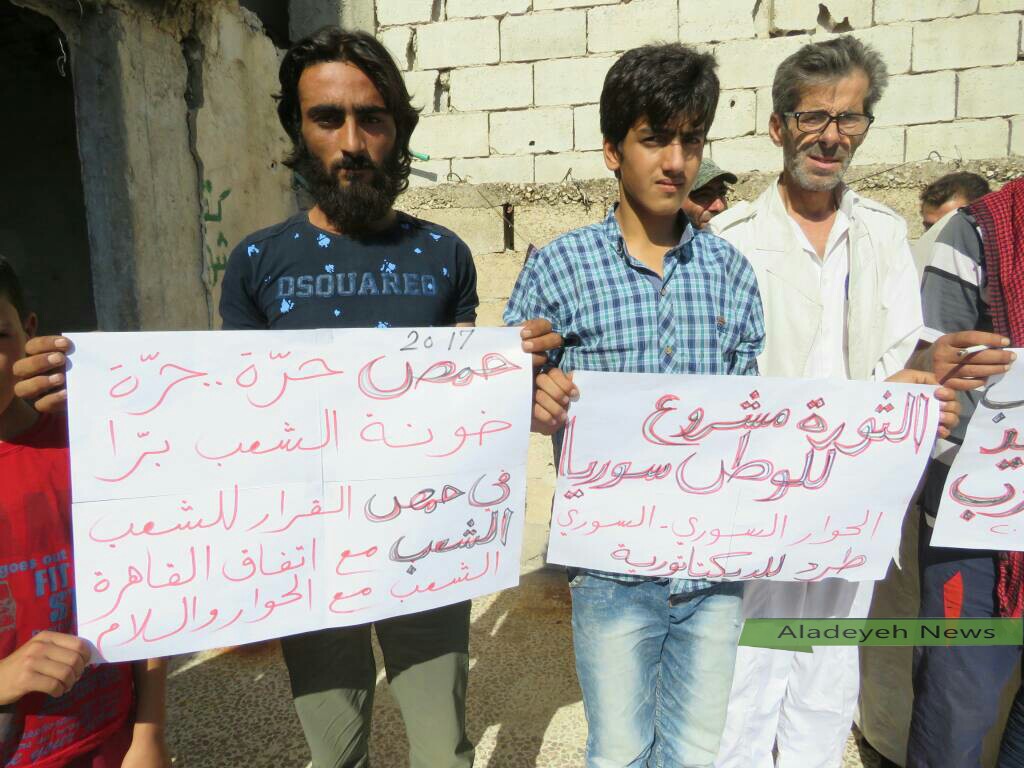 2017
حمص حرّة .. حرّة
خونة الشعب برّا
في حمص القرار للشعب
الشعب مع اتفاق القاهرة
الشعب مع الحوار والسلام
الثورة مشروع
للوطن سوريا
الحوار السوري - السوري
طرد للديكتاتورية
DSQUARED
goes out
FIT
Aladeyeh News